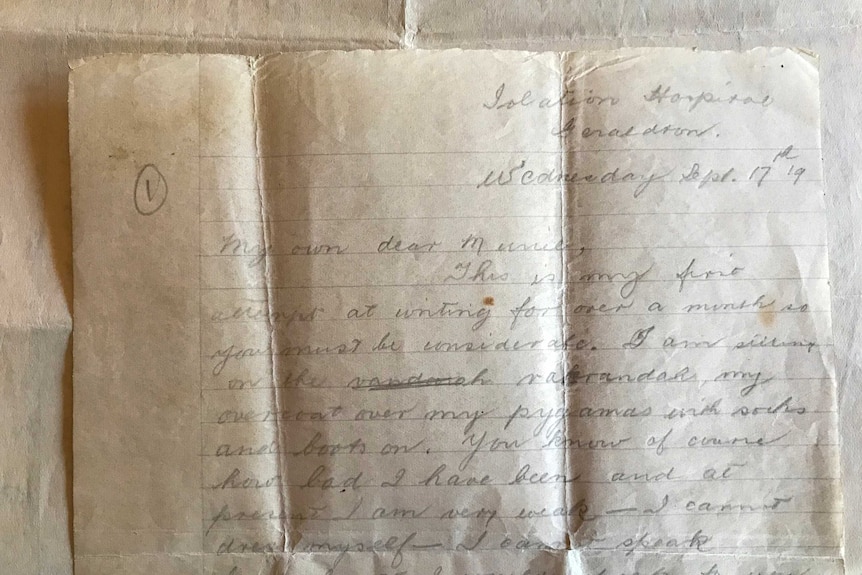 Isolation Hospital
Geraldton.
Wednesday Sept. 17th 19
1
My own dear Munie,
This is my first
attempt at writing for over a month so
you must be considerate. I am sitting
on the verandah, my
overcoat over my pyjamas with socks
and boots on. You know of course
how bad I have been and at
present I am very weak — I cannot
dress myself — I cannot speak